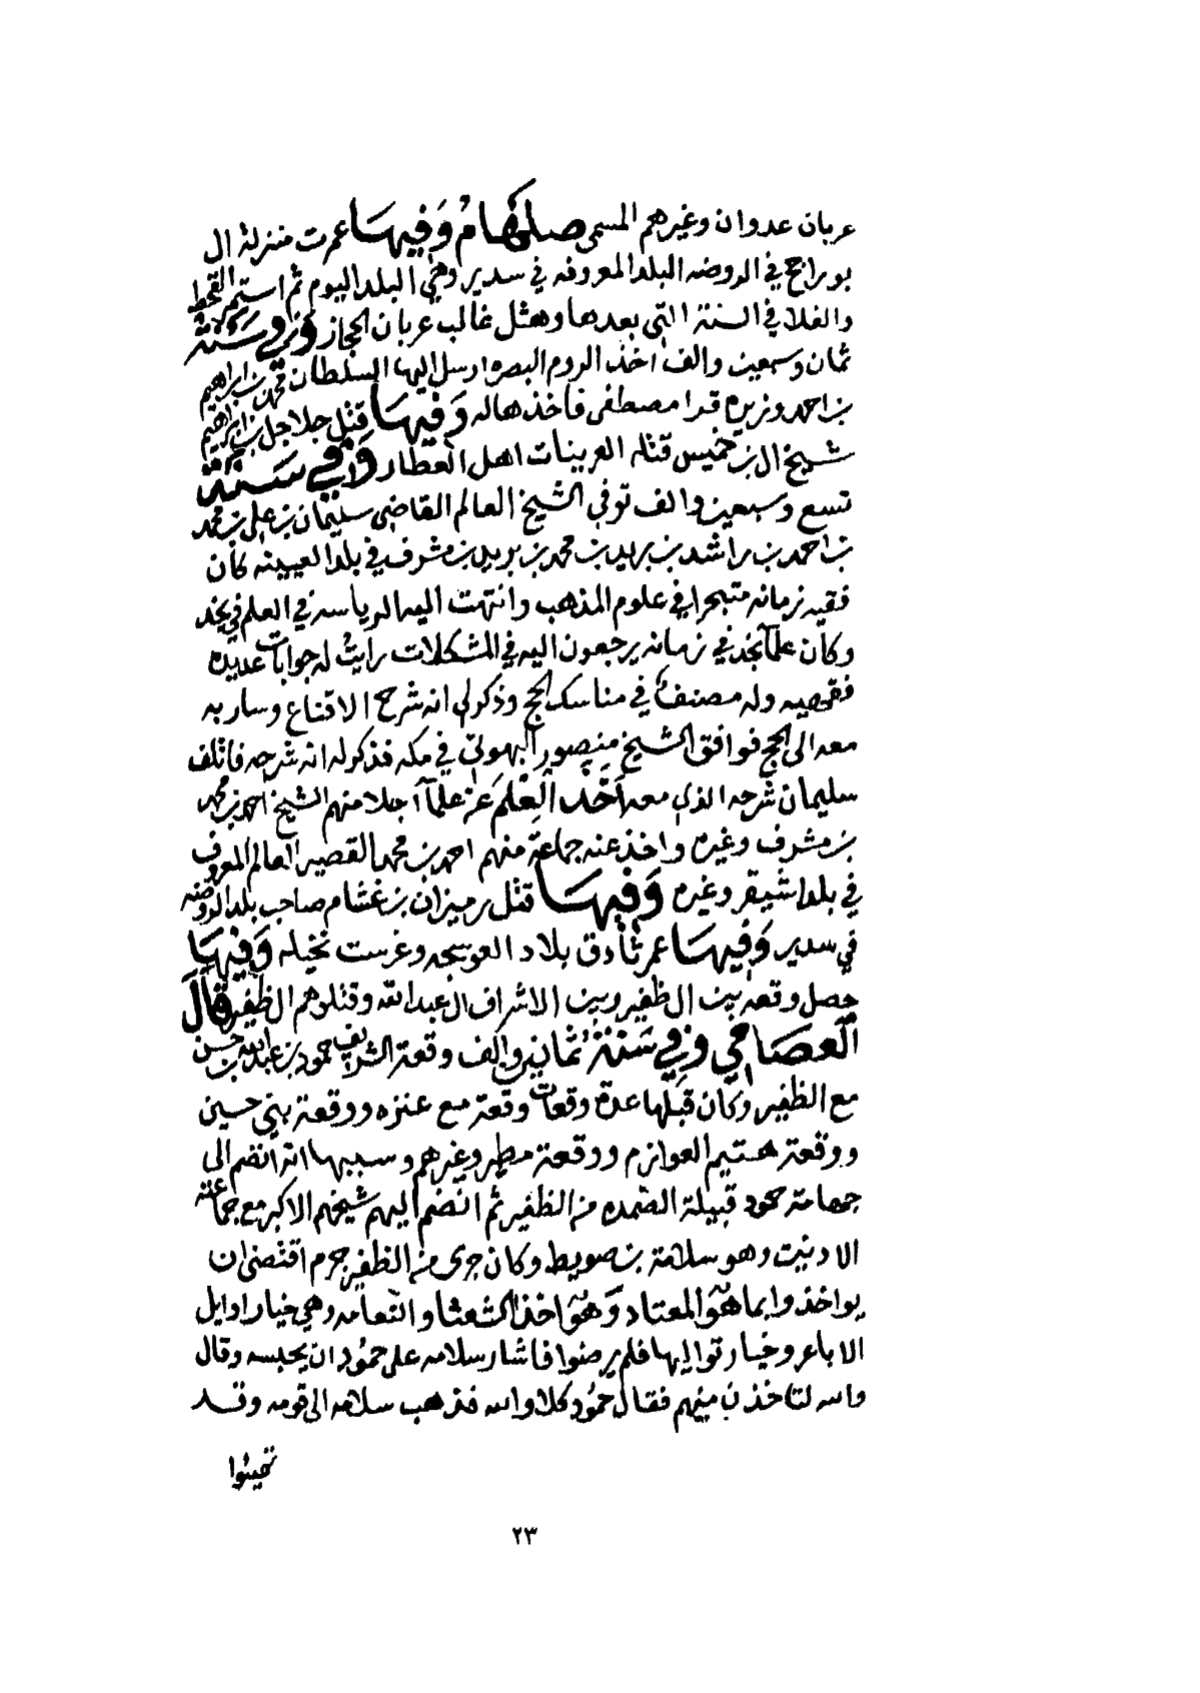 عربان عدوان وغيرهم المسمى صلهام وَفيهَا عمرت منزلة ال
بو راجح في الروضه البلد المعروفه في سدير وهي البلد اليوم ثم استمر القحط
والغلا في السنة التي بعدها وهثل غالب عربان الحجاز وَفي سَنَة
ثمان وسبعين والف اخذ الروم البصره ارسل اليها السلطان محمد بن ابراهيم
بن احمد وزيره قرا مصطفى فاخذها له وَفيهَا قتل جلاجل بن ابراهيم
شيخ ال بن خميس قتله العرينات اهل العطار وَفي سَنَة
تسع وسبعين والف توفي الشيخ العالم القاضي سليمان بن علي بن محمد
بن احمد بن راشد بن بريد بن محمد بن بريد بن مشرف في بلد العيينه كان
فقيه زمانه متبحرا في علوم المذهب وانتهت اليه الرياسه في العلم في نجد
وكان علمآ نجد في زمانه يرجعون اليه في المشكلات رايتُ له جوابات عديده
فقهيه وله مصنف في مناسك الحج وذكر لي انه شرح الاقناع وسار به
معه الى الحج فوافق الشيخ منصور البهوتي في مكه فذكر له انه شرحه فاتلف
سليمان شرحه الذي معه أخَذ العِلمَ عن علمآ أجلا منهم الشيخ احمد بن محمد
بن مشرف وغيره واخذ عنه جماعة منهم احمد بن محمد القصير العالم المعروف
في بلد اشيقر وغيره وَفيهَا قتل رميزان بن غشام صاحب بلد الروضه
في سدير وَفيهَا عمر ثادق بلاد العوسجه وغرست نخيله وَفيهَا
حصل وقعه بين ال ظفير وبين الاشراف ال عبد الله وقتلوهم ال ظفير قَالَ
العصَامي وفي سَنَة ثمانين والف وقعة الشريف حمود بن عبد الله بن حسن
مع الظفير وكان قبلها عدة وقعات وقعة مع عنزه ووقعة بني حسين
ووقعة هتيم العوازم ووقعة مطير وغيرهم وسببها انه انضم الى
جهامة حمود قبيلة الصمده من الظفير ثم انضم اليهم شيخهم الاكبر مع جماعته
الادنين وهو سلامة بن صويط وكان جرى من الظفير جرم اقتضى ان
يواخذوا بما هو المعتاد وَهو اخذ الشعثا والنعامه وهي خيار اوايل
الاباعر وخيار تواليها فلم يرضوا فاشار سلامه على حمُود ان يحبسه وقال
والله لتاخذن منهم فقال حمُود كلا والله فذهب سلامه الى قومه وقد
تحينوا
٢٣